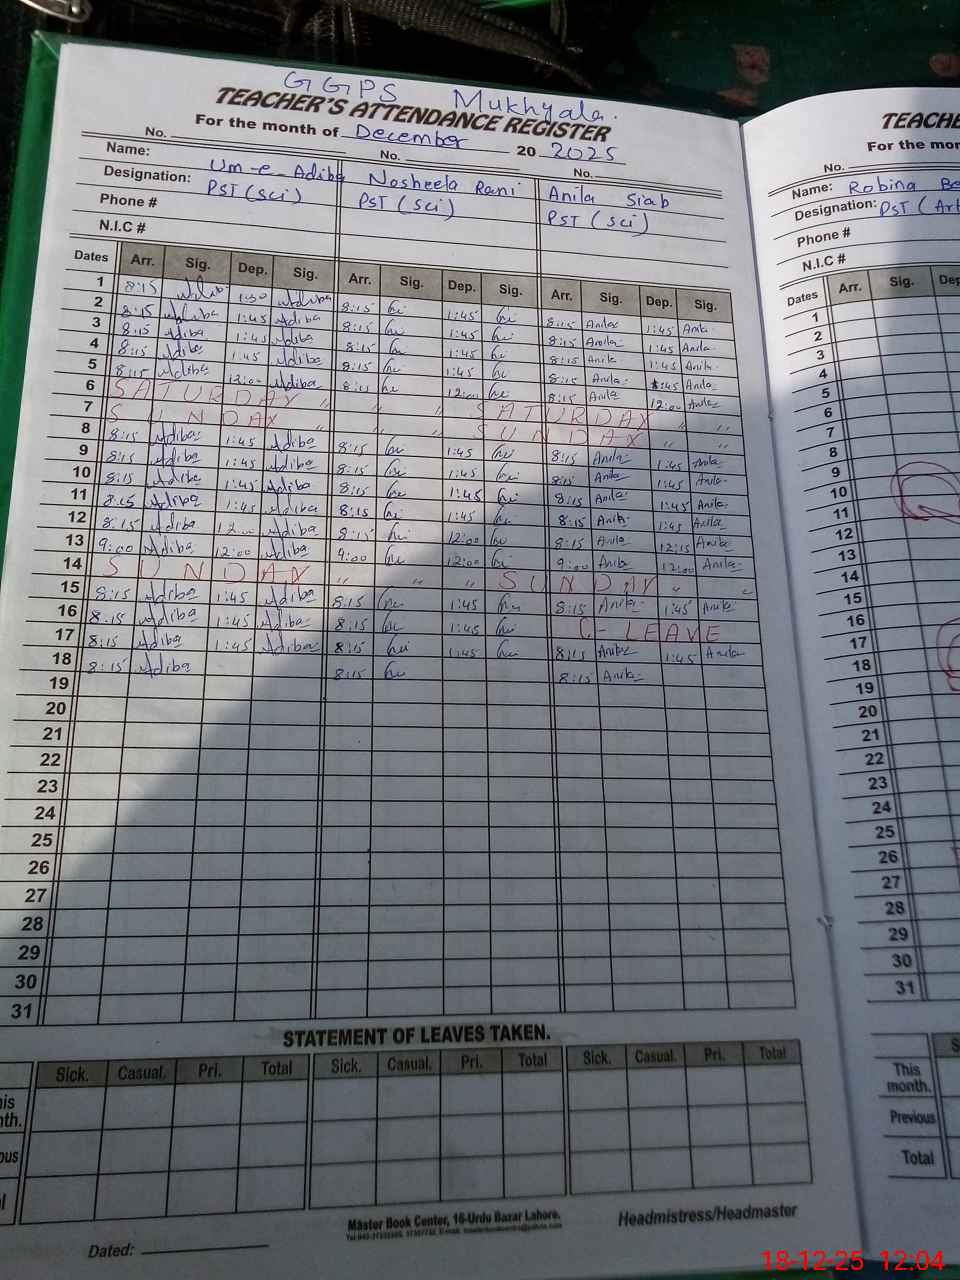 GGPS Mukhyala.
TEACHER'S ATTENDANCE REGISTER
For the month of December 20 2025
No. No. No.
Name: Um-e-Adiba Nosheela Rani Anila Siab
Designation: PST (sci) PST (sci) PST (sci)
Phone #
N.I.C #
Dates Arr. Sig. Dep. Sig. Arr. Sig. Dep. Sig. Arr. Sig. Dep. Sig.
1 8:15 1:30 Adiba 8:15 1:45 8:15 Anila 1:45 Anila
2 8:15 Adiba 1:45 Adiba 8:15 1:45 8:15 Anila 1:45 Anila
3 8:15 Adiba 1:45 Adiba 8:15 1:45 8:15 Anila 1:45 Anila
4 8:15 Adiba 1:45 Adiba 8:15 1:45 8:15 Anila 1:45 Anila
5 8:15 Adiba 12:00 Adiba 12:00 8:15 Anila 12:00 Anila
6 SATURDAY " " " SATURDAY " "
7 SUNDAY " " " SUNDAY " "
8 8:15 Adiba 1:45 Adiba 8:15 1:45 8:15 Anila 1:45 Anila
9 8:15 Adiba 1:45 Adiba 8:15 1:45 8:15 Anila 1:45 Anila
10 8:15 Adiba 1:45 Adiba 8:15 1:45 8:15 Anila 1:45 Anila
11 8:15 Adiba 1:45 Adiba 8:15 1:45 8:15 Anila 1:45 Anila
12 8:15 Adiba 12:00 Adiba 8:15 12:00 8:15 Anila 12:15 Anila
13 9:00 Adiba 12:00 Adiba 9:00 12:00 9:00 Anila 12:00 Anila
14 SUNDAY " " " SUNDAY " "
15 8:15 Adiba 1:45 Adiba 8:15 1:45 8:15 Anila 1:45 Anila
16 8:15 Adiba 1:45 Adiba 8:15 1:45 C-LEAVE
17 8:15 Adiba 1:45 Adiba 8:15 1:45 8:15 Anila 1:45 Anila
18 8:15 Adiba 8:15 8:15 Anila
19
20
21
22
23
24
25
26
27
28
29
30
31
STATEMENT OF LEAVES TAKEN.
Sick. Casual. Pri. Total Sick. Casual. Pri. Total Sick. Casual. Pri. Total
Master Book Center, 16-Urdu Bazar Lahore.
Headmistress/Headmaster
Dated:
TEACHE
For the mon
No.
Name: Robina Be
Designation: PST (Art
Phone #
N.I.C #
Dates Arr. Sig. Dep
1
2
3
4
5
6
7
8
9
10
11
12
13
14
15
16
17
18
19
20
21
22
23
24
25
26
27
28
29
30
31
This month.
Previous
Total
18-12-25 12:04